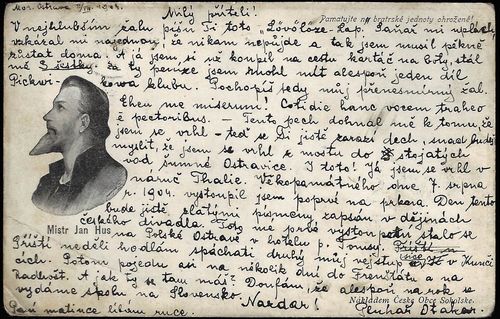 Mor. Ostrava 7/VIII. 1904.
Milý příteli!
Pamatujte na bratrské jednoty ohrožené!
V nejhlubším žalu píšu Ti toto „Lövöloze-Lap. Gaňař mi
vzkázal mi najednou, že nikam nepojede a tak jsem musil pěkně
zůstat doma. A já jsem si už koupil na cestu kartáč na boty, stál
mě 3 šestky, za ty peníze jsem mohl mít alespoň jeden díl
Pickwi- ckova klubu. Pochopíš tedy můj přenesmírný žal.
Eheu me miserum! Cotidie hanc vocem traho
e pectoribus. – Tento pech dohnal mě k tomu, že
jsem se vrhl – teď se Ti jistě zarazí dech, snad budeš
myslit, že jsem se vrhl z mostu do stojatých
vod šumné Ostravice. I toto! Já jsem se vrhl v
náruč Thalie. Věkopamátného dne 7. srpna
r. 1904. vystoupil jsem poprvé na prkna. Den tento
bude jistě zlatými písmeny zapsán v dějinách
českého divadla. Toto mé prvé vystoupení stalo se
na Polské Ostravě v hotelu p.
Mistr Jan Hus
Příští neděli hodlám spáchati druhý můj vejstup v Kunči
cích. Potom pojedu asi na několik dní do Frenštátu a na
Radhošť. A jak ty se tam máš? Doufám, že alespoň na rok se
vydáme spolu na Slovensko. Nazdar!
Nákladem České Obce Sokolské.
Paní matince líbám ruce.
Otakar.